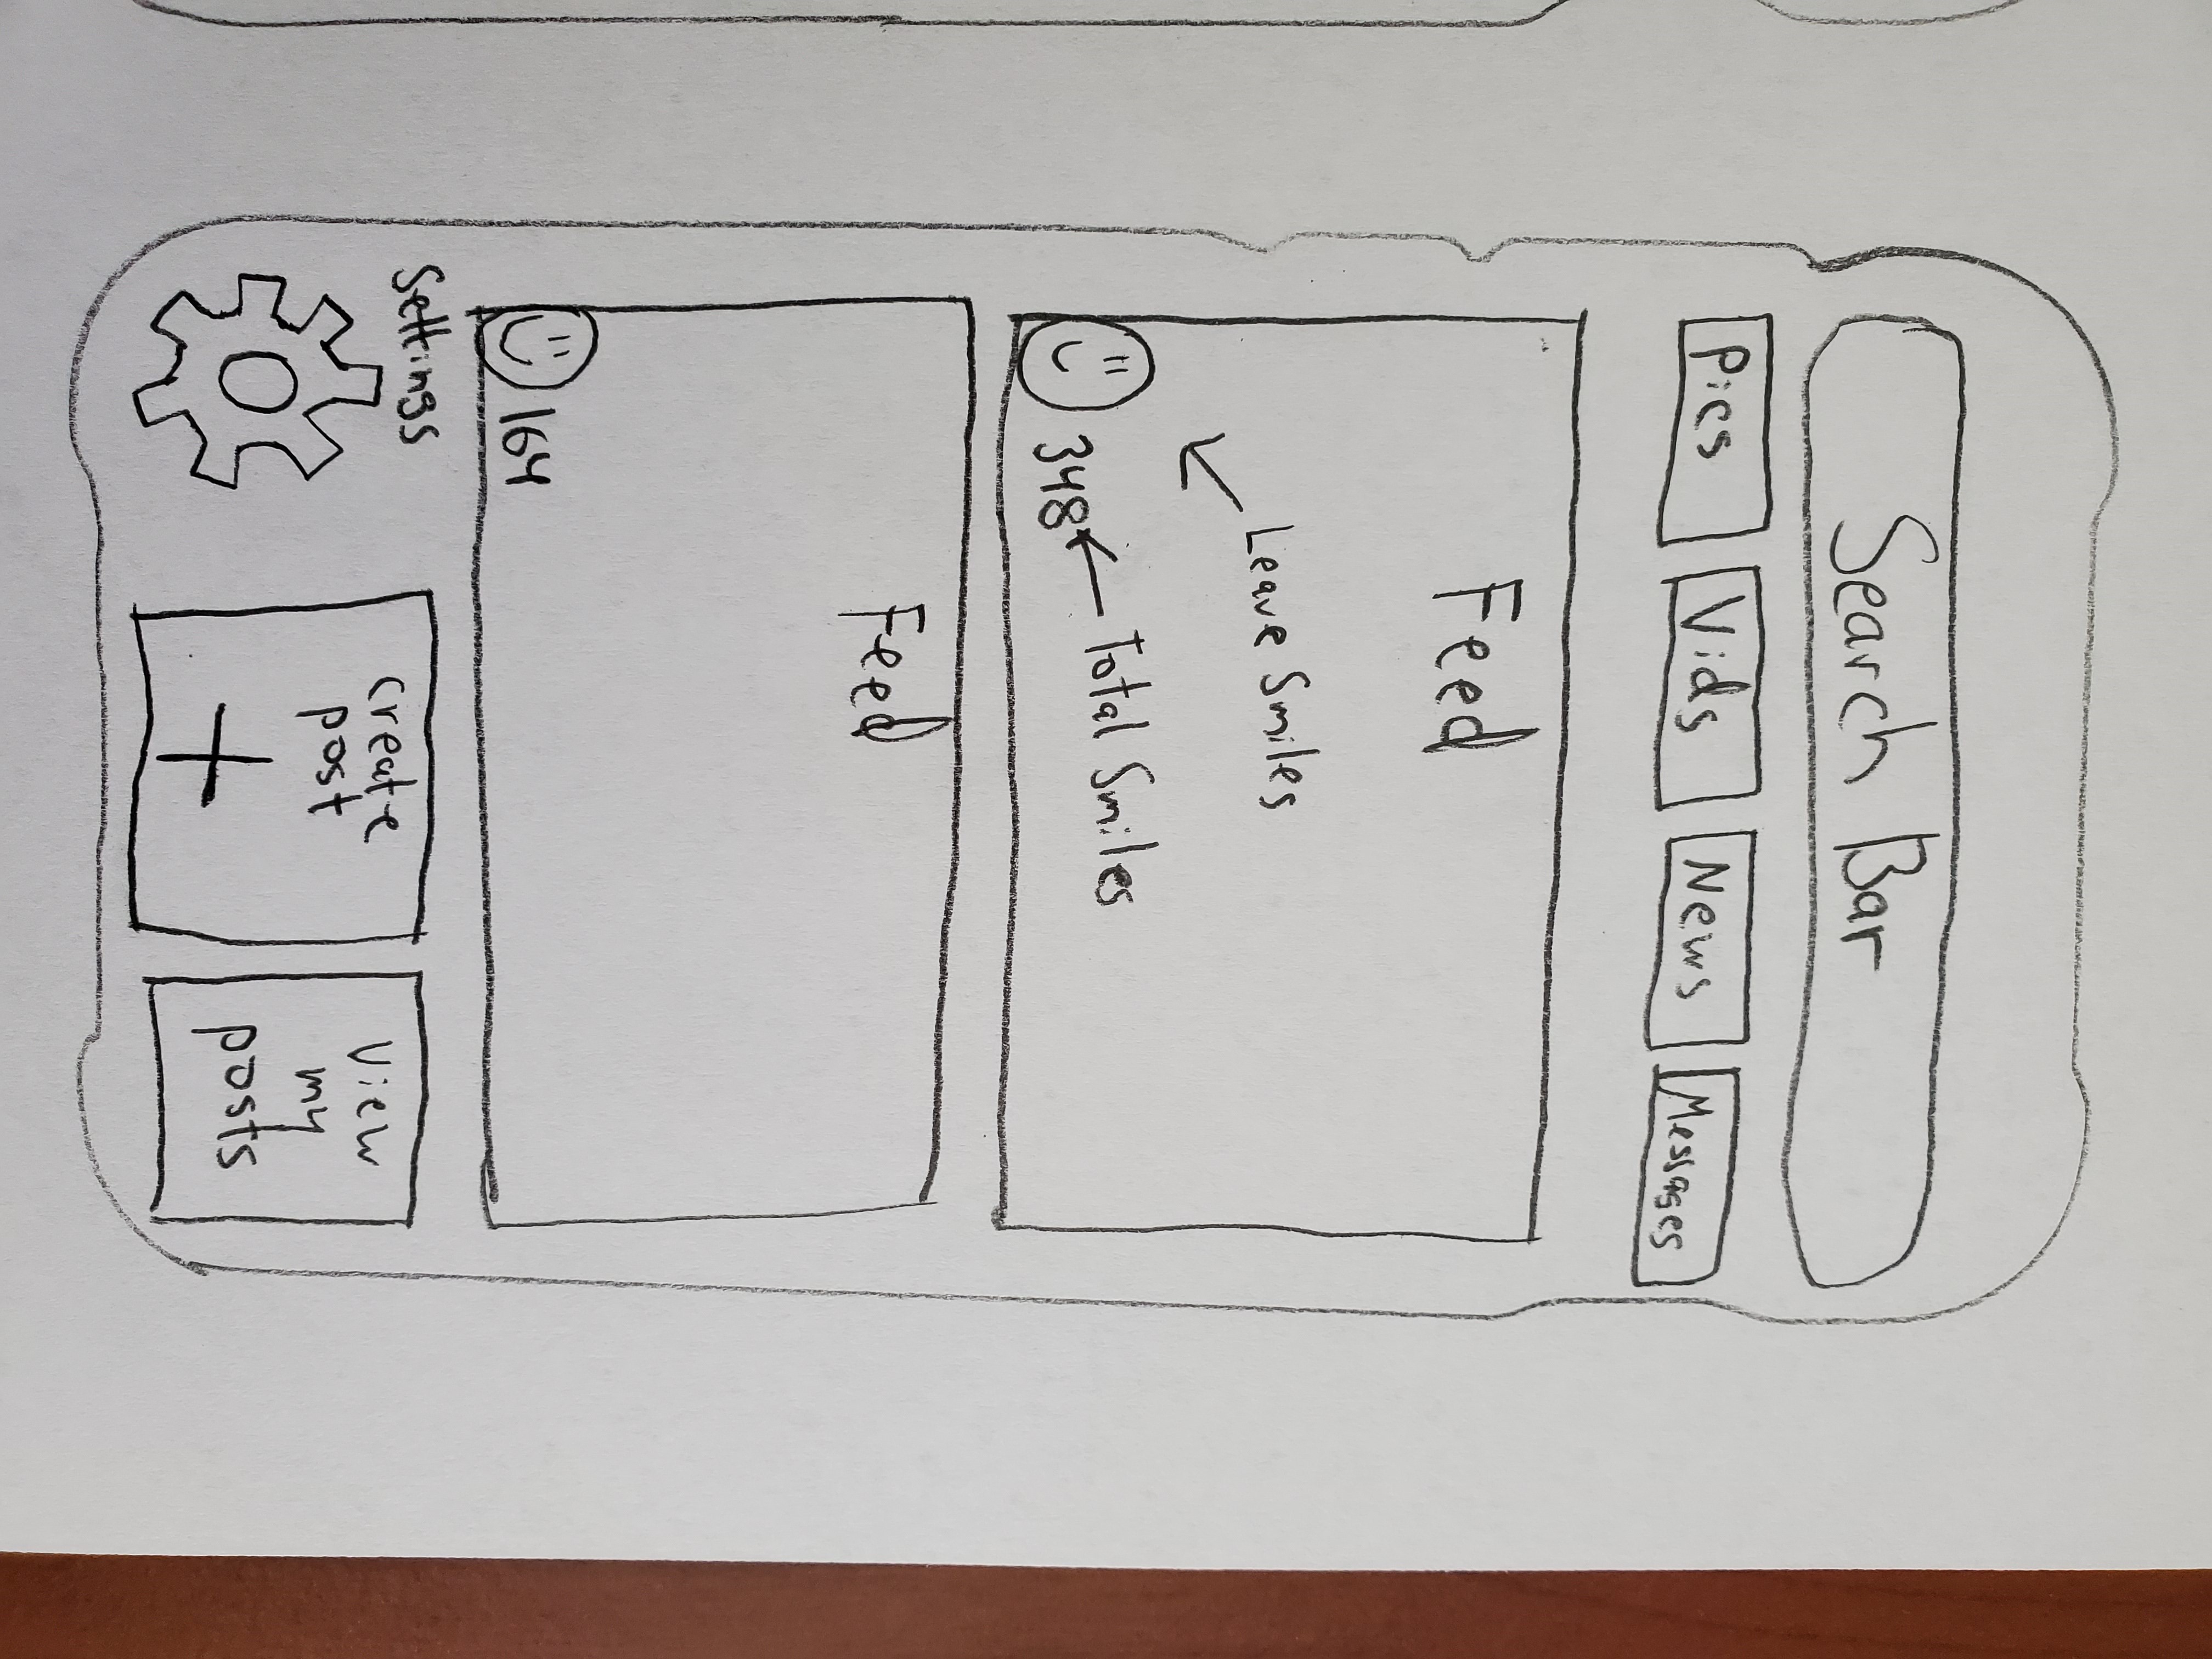 Search Bar
Pics
Vids
News
Messages
Feed
Leave Smiles
Total Smiles
348
Feed
164
Settings
create
post
+
View
my
posts